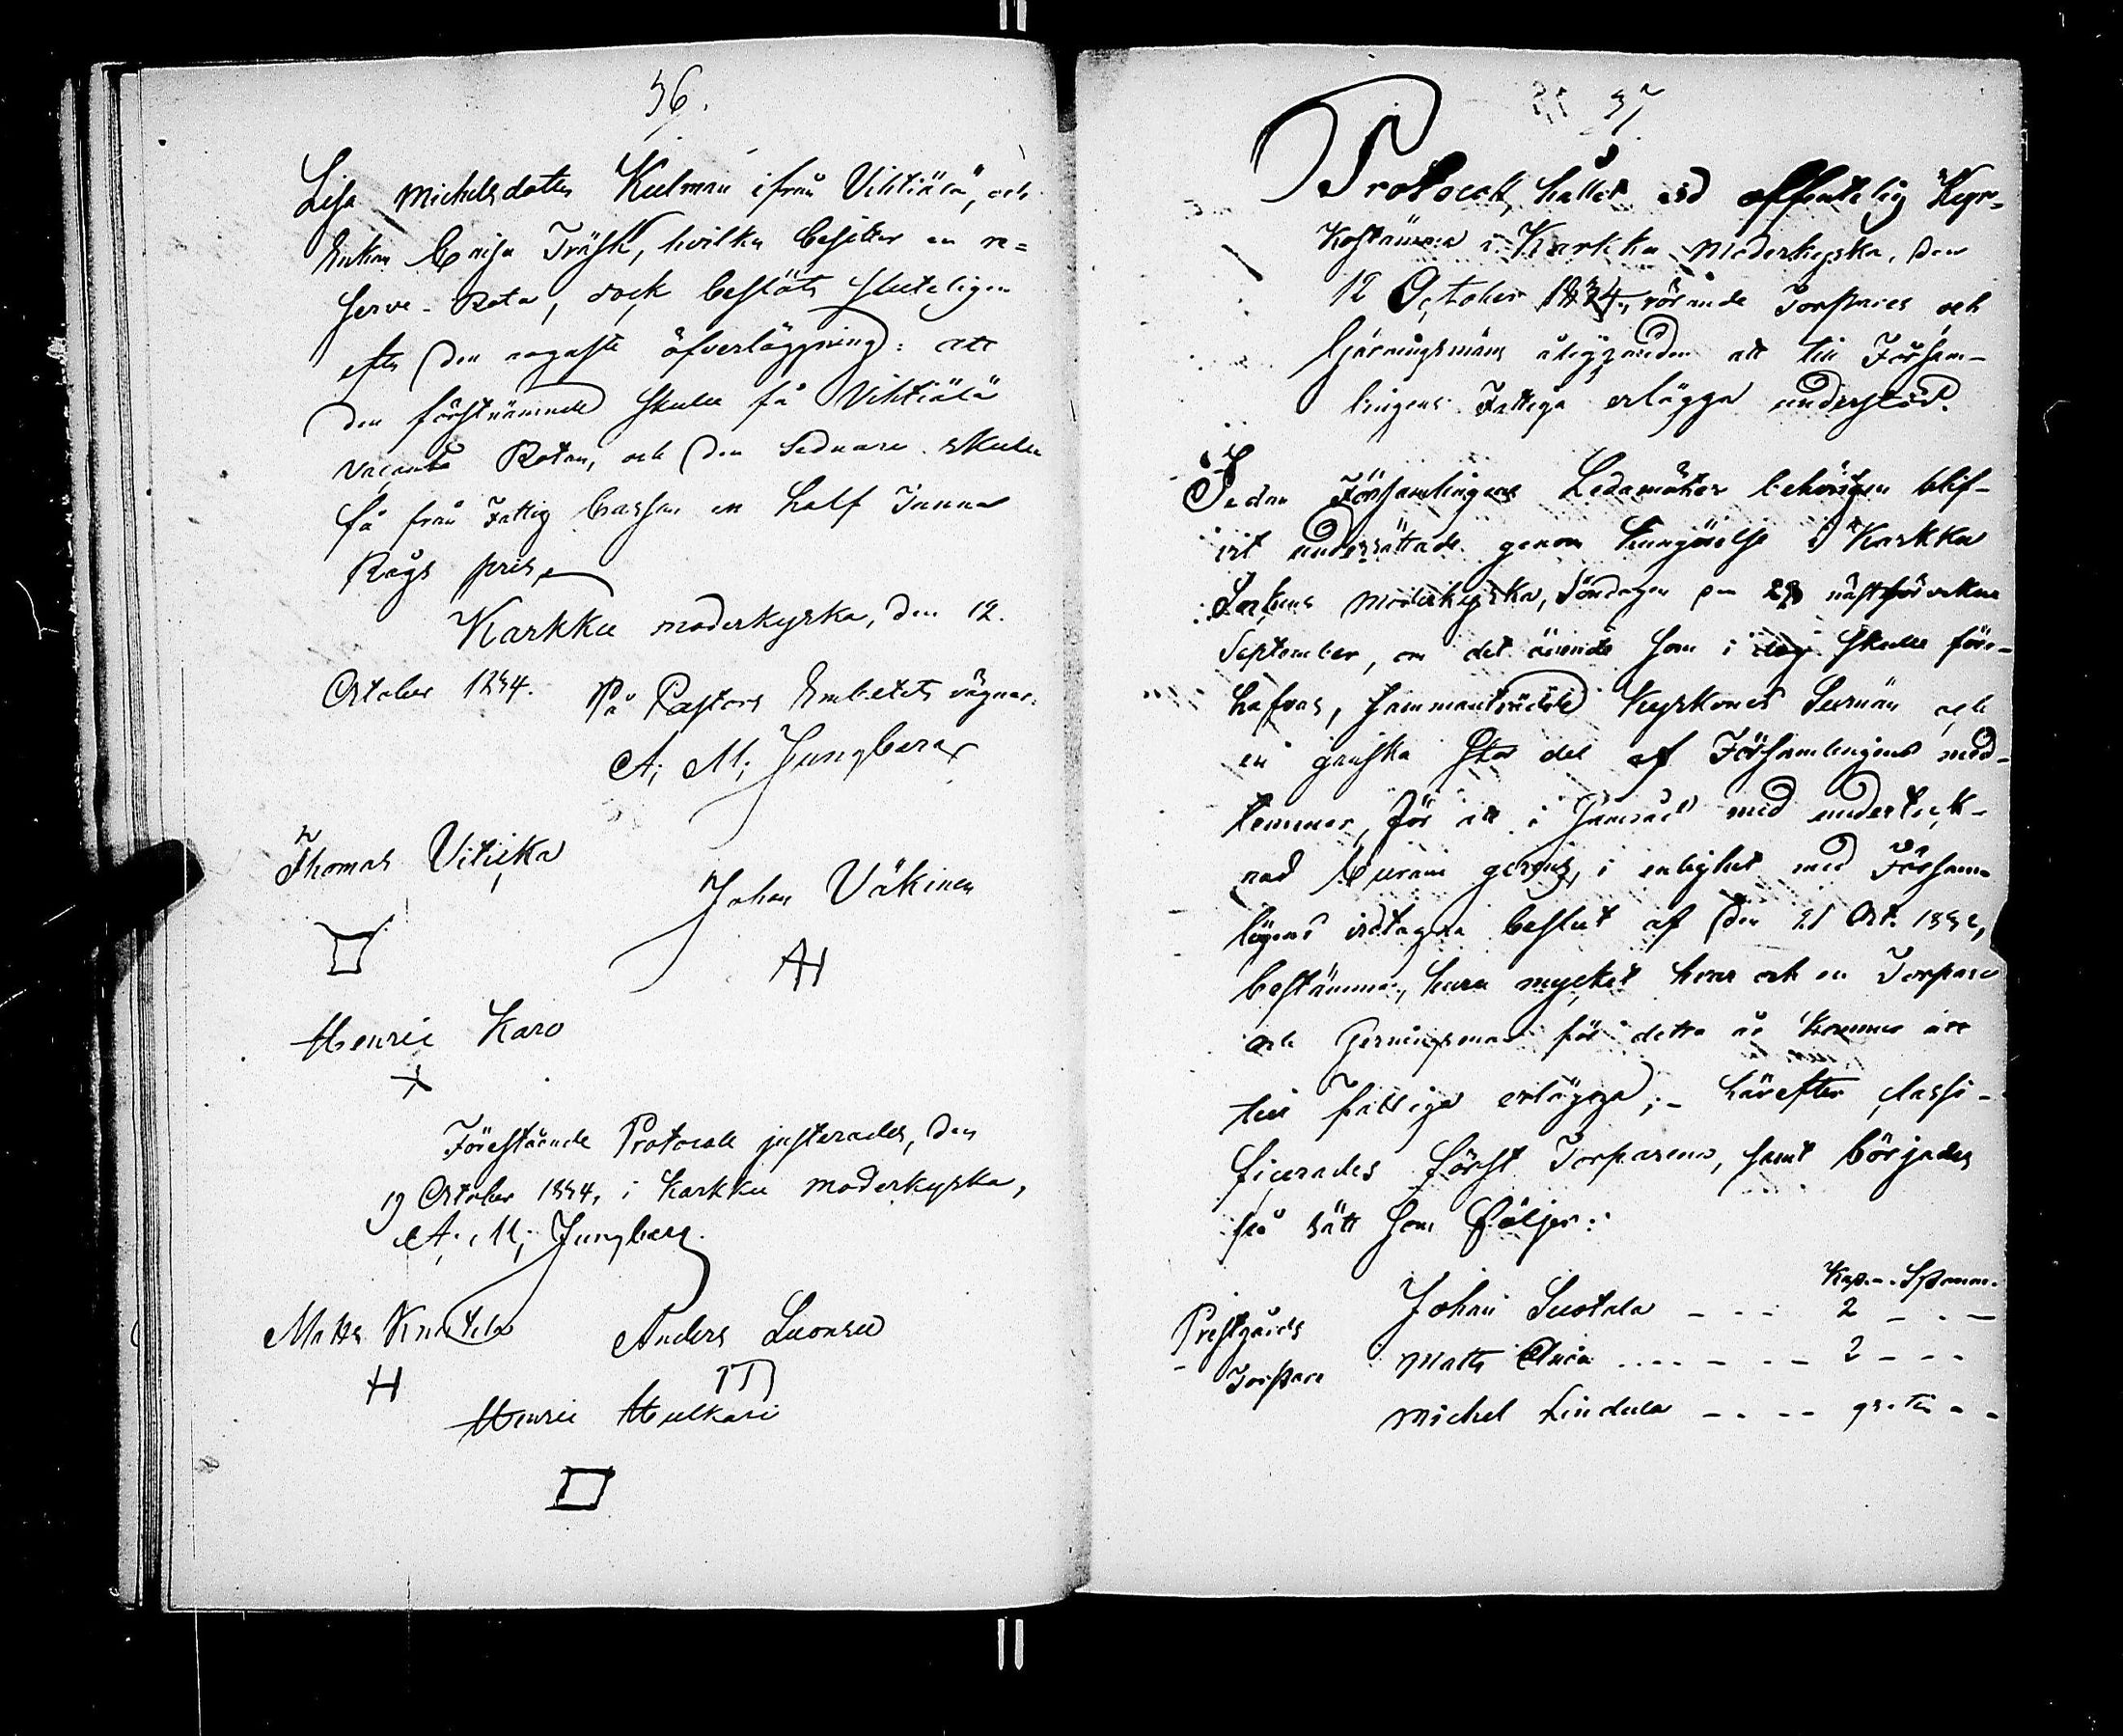 36.
Lisa Michelsdotter Kulman ifrån Vihtiälä, och
Enkan Caisa Träsk, hvilka besitter en re=
serve-Rota, dock beslöts sluteligen
efter den nogaste öfverläggning: att
den förstnämnde skulle få Vihtiälä
vacanta Rotan, och den sednare skulle
få från Fattig Cassan en half Tunna
Rågs pris,
Karkku moderkyrka, den 12.
October 1834. På Pastors Embetets vägnar.
A; M; Ljungberg
Thomas
Johan Väkinen
AH
Henric Karo
Förestående Protocoll justerades, den
19 October 1834, i Karkku moderkyrka,
A; M; Ljungberg.
Matts Knuutila Anders Luonsu
H
Henric Hulkari
37.
Protocoll, hållet vid offentelig Kyr-
kostämma i Karkku Moderkyrka, den
12 October 1834, rörande Torpares och
Gjerningsmäns åliggander att till Försam-
lingens Fattiga erlägga understöd.
Sedan Församlingens Ledamöter behörigen blif-
vit underrättade genom kungörelse i Karkku
Sockens Moderkyrka, Söndagen den 28 nästförvekne
September, om det ärende som i dag skulle före-
hafvas, sammanträdde Kyrkones Sexmän och
en ganska stor del af Församlingens med-
lemmar, för att i samråd med underteck-
nad Curam gerens, i enlighet med Försam-
lingens vidtagna beslut af den 21 Oct. 1832,
bestämma, huru mycket hvar och en Torpare
och Gerningsman för detta år kommer att
till fattiga erlägga; - härefter classi-
ficerades först Torparena, samt börjades
på sätt som följer:
Kap.-. Spann.
Prestgårds Johan Suotala - - - 2 - . -
Torpare Matts .... - - - 2 - - -
Michel Lindula - . - - gratis - -